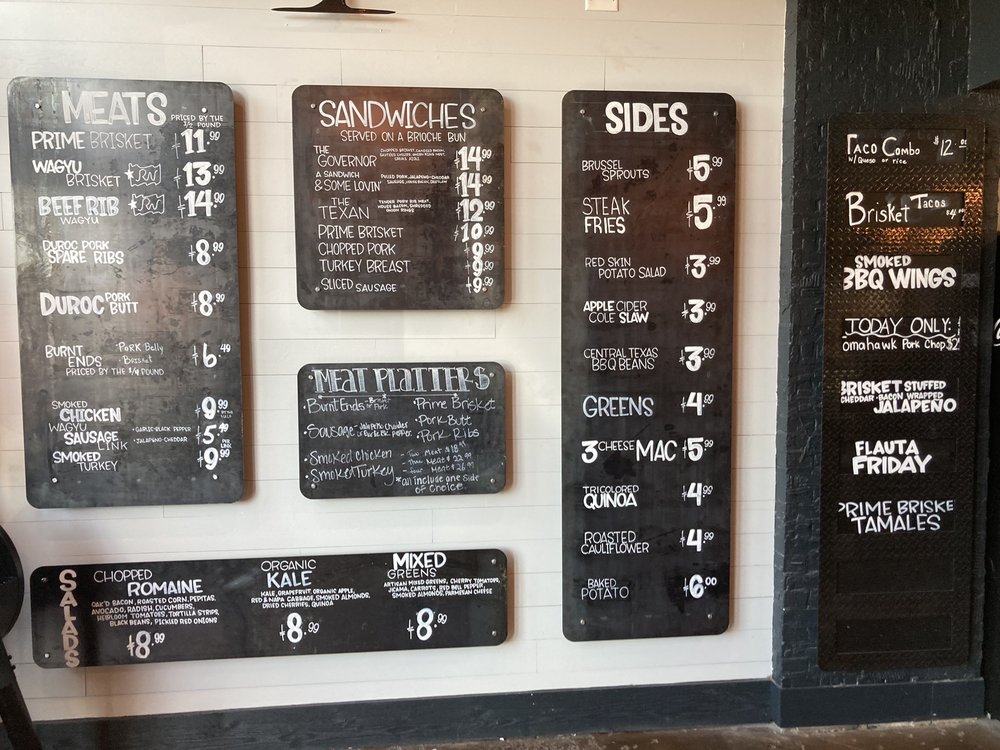 MEATS
PRICED BY THE
1/2 POUND
PRIME BRISKET $11.99
WAGYU
BRISKET $13.99
BEEF RIB $14.90
WAGYU
DUROC PORK
SPARE RIBS $8.99
DUROC PORK
BUTT $8.99
BURNT
ENDS
· PORK Belly
· Brisket
$6.49
PRICED BY THE 1/4 POUND
SMOKED
CHICKEN $9.99
WAGYU
SAUSAGE
LINK
· GARLIC-BLACK PEPPER
· JALAPEÑO CHEDDAR
$5.49
PER
LINK
SMOKED
TURKEY $9.99
SANDWICHES
SERVED ON A BRIOCHE BUN
THE
GOVERNOR
$14.99
A SANDWICH
& SOME LOVIN'
PULLED PORK, JALAPEÑO-CHEDDAR
$14.99
THE
TEXAN
TENDER PORK RIB MEAT,
HOUSE BACON, SHREDDED
ONION RINGS
$12.99
PRIME BRISKET $10.99
CHOPPED PORK $9.99
TURKEY BREAST $9.99
SLICED SAUSAGE $9.99
MEAT PLATTERS
· Burnt Ends - Brisket or Pork
· Sausage - Jalapeño Cheddar
or Garlic Bl. Pepper
· Smoked Chicken
· Smoked Turkey
· Prime Brisket
· Pork Butt
· Pork Ribs
- Two Meat $18.99
- Three Meat $22.99
- Four Meat $26.99
* all include one side
of choice
SALADS
CHOPPED
ROMAINE
OAK'D BACON, ROASTED CORN, PEPITAS,
AVOCADO, RADISH, CUCUMBERS,
HEIRLOOM TOMATOES, TORTILLA STRIPS,
BLACK BEANS, PICKLED RED ONIONS
$8.99
ORGANIC
KALE
KALE, GRAPEFRUIT, ORGANIC APPLE,
RED & NAPA CABBAGE, SMOKED ALMONDS,
DRIED CHERRIES, QUINOA
$8.99
MIXED
GREENS
ARTISAN MIXED GREENS, CHERRY TOMATOES,
JICAMA, CARROTS, RED BELL PEPPER,
SMOKED ALMONDS, PARMESAN CHEESE
$8.99
SIDES
BRUSSEL
SPROUTS $5.99
STEAK
FRIES $5.99
RED SKIN
POTATO SALAD $3.99
APPLE CIDER
COLE SLAW $3.99
CENTRAL TEXAS
BBQ BEANS $3.99
GREENS $4.99
3 CHEESE MAC $5.99
TRICOLORED
QUINOA $4.99
ROASTED
CAULIFLOWER $4.99
BAKED
POTATO $6.00
Taco Combo $12.
W/ Queso or rice
Brisket Tacos
SMOKED
BBQ WINGS
TODAY ONLY:
omahawk Pork Chop $2
BRISKET STUFFED
CHEDDAR · BACON WRAPPED
JALAPEÑO
FLAUTA
FRIDAY
PRIME BRISKE
TAMALES